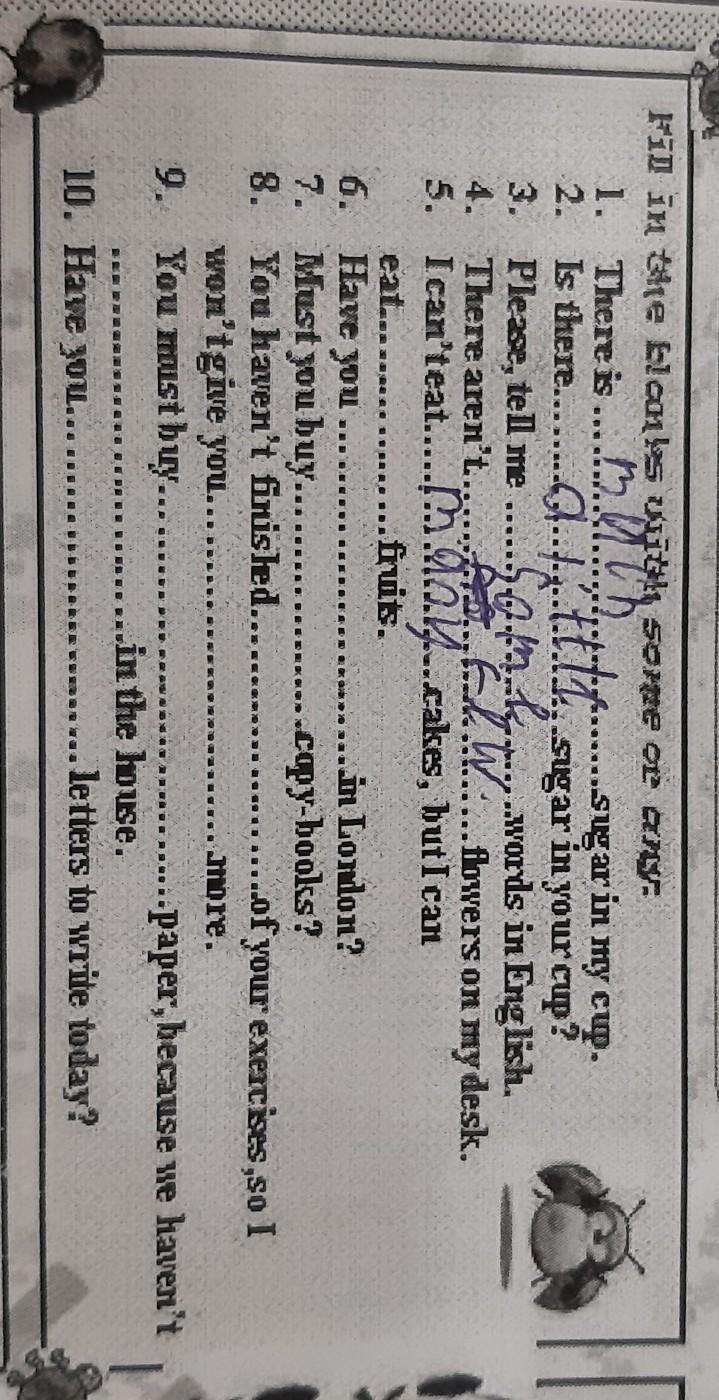 Fill in the blanks with some or any.
1. There is ... much ... sugar in my cup.
2. Is there ... a little ... sugar in your cup?
3. Please, tell me ... some ... words in English.
4. There aren't ... few ... flowers on my desk.
5. I can't eat ... many ... cakes, but I can
eat ... fruits.
6. Have you ... in London?
7. Must you buy ... copy-books?
8. You haven't finished ... of your exercises, so I
won't give you ... more.
9. You must buy ... paper, because we haven't
... in the house.
10. Have you ... letters to write today?